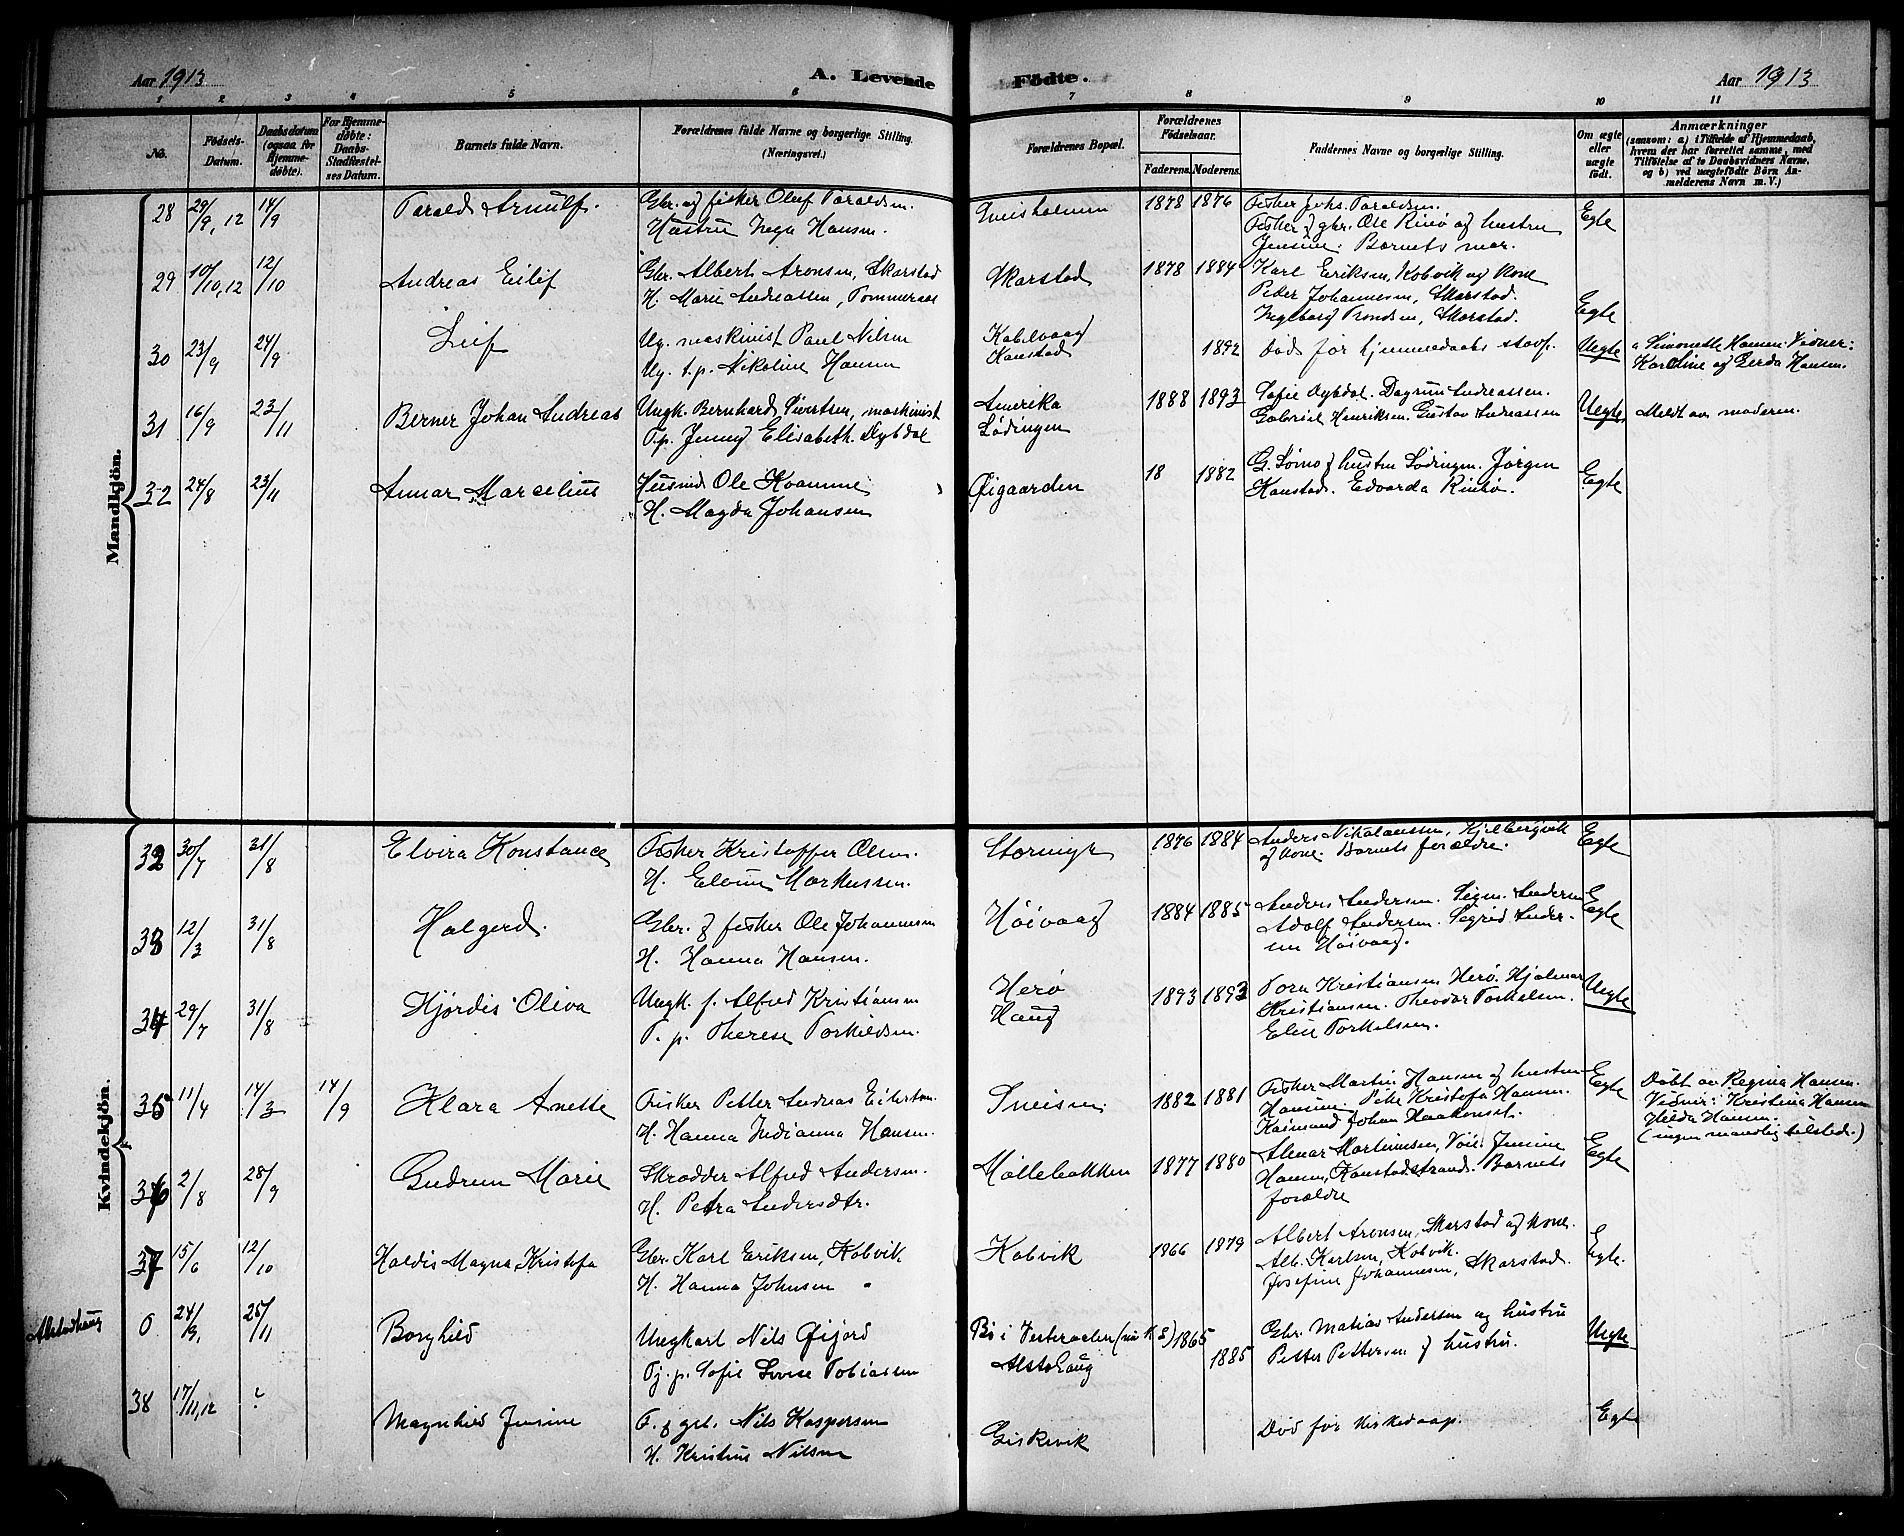 Aar 1913
A. Levende
Fødte.
Aar 1913
1 2 3 4 5 6 7 8 9 10 11
No.
Fødsels-
Datum.
Daabsdatum
(ogsaa for
Hjemme-
døbte).
For Hjemme-
døbte:
Daabs-
Stadfæstel-
ses Datum.
Barnets fulde Navn.
Forældrenes fulde Navne og borgerlige Stilling.
(Næringsvei.)
Forældrenes Bopæl.
Forældrenes
Fødselsaar.
Faderens. Moderens.
Faddernes Navne og borgerlige Stilling.
Om ægte
eller
uægte
født.
Anmærkninger
(saasom: a) i Tilfælde af Hjemmedaab,
hvem der har forrettet samme, med
Tilføielse af to Daabsvidners Navne,
og b) ved uægtefødte Børn An-
melderens Navn m. V.)
Mandkjøn.
28 29/9, 12 14/9 Tarald Arnulf. Gbr. og fisker Oluf Taraldsen.
Hustru Inga Hansen.
1878 1876 Fisker Johs. Taraldsen.
Fisker & gbr. Ole Rinø og hustru
Jensine. Barnets mor.
Egte
29 10/10, 12 12/10 Andreas Eilif Gbr. Albert Aronsen, Skarstad
H. Marie Andreassen, Pommeraas
Skarstad 1878 1884 Karl Eriksen, Kobvik og kone
Peder Johannesen, Skarstad.
Ingeborg Trondsen, Skarstad.
Egte
30 23/9 24/9 Leif Ug. maskinist Paul Nilsen
Ug. t.p. Nikoline Hansen
Kabelvaag
Kanstad
1892 Død før hjemmedaabs stadf. Uegte
a Simonette Hansen. Vidner:
Karoline og Gerda Hansen.
31 16/9 23/11 Berner Johan Andreas Ungk. Bernhard Sivertsen, maskinist
T.p. Jenny Elisabeth Dybdal
Amerika
Lødingen
1888 1893 Sofie Dybdal. Dagrun Andreassen.
Gabriel Henriksen. Gustav Andreassen
Uegte, Meldt av moderen.
32 24/8 23/11 Annar Marcelius Husmd Ole Kvamme
H. Magda Johansen
Øigaarden 18 1882 G. Lømo & hustru Lødingen. Jørgen
Kanstad. Edvarda Rinbø.
Egte
Kvindekjøn.
32 30/7 31/8 Elvira Konstance Fisker Kristoffer Olsen.
H. Elvine Markussen.
Stormyr 1876 1884 Anders Nikolaussen, Kjelbergvik
og kone. Barnets forældre.
Egte
33 12/3 31/8 Halgerd. Gbr. & fisker Ole Johannesen
H. Hanna Hansen.
Høivaag 1884 1885 Anders Andersen. Sign. Andersen
Adolf Andersen. Sigrid Ander-
sen Høivaag.
Egte
34 29/7 31/8 Hjördis Oliva Ungk. f. Alfred Kristiansen
T. p. Therese Torkildsen.
Herø
Haug
1893 1893 Tora Kristiansen Herø. Hjalmar
Kristiansen. Theodor Torkelsen.
Elise Torkelsen.
Uegte
35 11/4 14/3 14/9 Klara Anette Fisker Petter Andreas Eilertsen.
H. Hanna Indianna Hansen.
Sneisen 1882 1881 Fisker Martin Hansen og hustru
Hansine. Petr Kristofa Hansen.
Raimund & Johan Haakonsst.
Egte Døbt av Regina Hansen.
Vidner: Kristina Hansen
Hilda Hansen.
(ingen mandlig tilstede.)
36 2/8 28/9 Gudrun Marie Skrædder Alfred Andersen.
H. Petra Andersdtr.
Møllebakken 1877 1880 Almar Martinussen, Voie. Jensine
Hansen, Kanstadstrand. Barnets
forældre
Egte
37 15/6 12/10 Haldis Magna Kristofa Gbr. Karl Eriksen, Kobvik
H. Hanna Johnsen "
Kobvik 1866 1879 Albert Aronsen, Skarstad og kone.
Alb. Karlsen, Kobvik.
Josefine Johannesen, Skarstad.
Egte.
Alstadhaug 0 24/9, 25/11 Borghild Ungkarl Nils Øijord
Tj.p. Sofie Lovise Tobiassen
Bø i Vesteraalen
Alstahaug
1865
1885
Gbr. Matias Andersen og hustru
Petter Pettersen & hustru.
Uegte
38 17/11, 12 ? Magnhild Jensine F. & gbr. Nils Kaspersen
H. Kristine Nilsen
Giskevik Død før kirkedaap. Egte